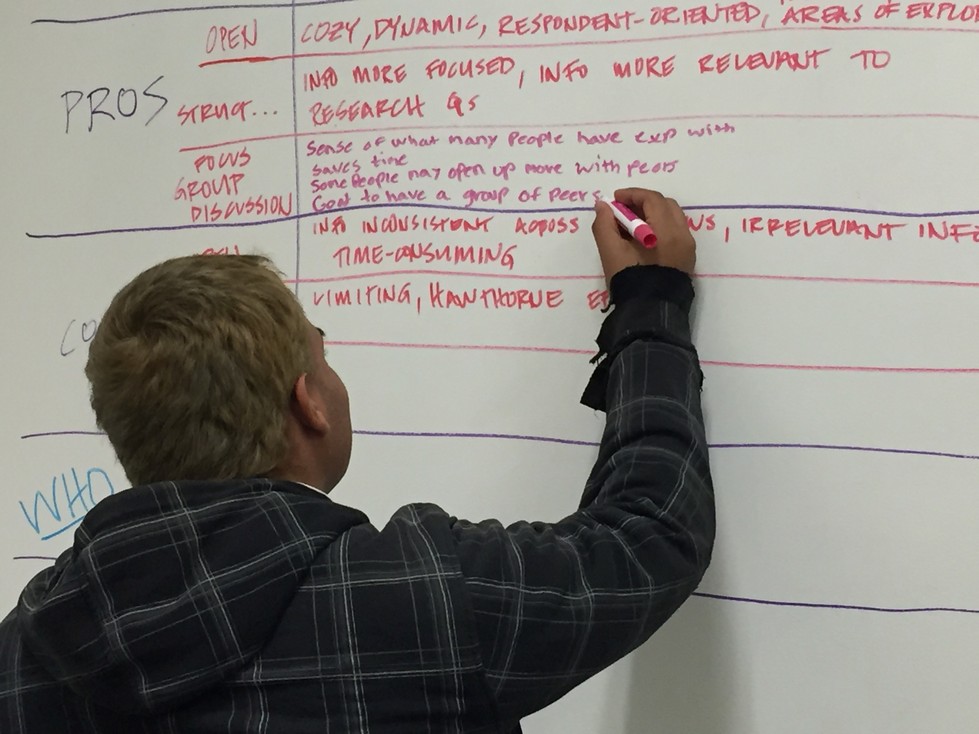 OPEN
COZY, DYNAMIC, RESPONDENT-ORIENTED, AREAS OF EXPLO
PROS
STRUCT...
INFO MORE FOCUSED, INFO MORE RELEVANT TO
RESEARCH QS
FOCUS
GROUP
DISCUSSION
Sense of what many people have exp with
saves time
Some People may open up more with peers
Goat to have a group of peers
INFO INCONSISTENT ACROSS
NS, IRRELEVANT INFO
TIME-CONSUMING
LIMITING, HAWTHORNE
CO
WHO